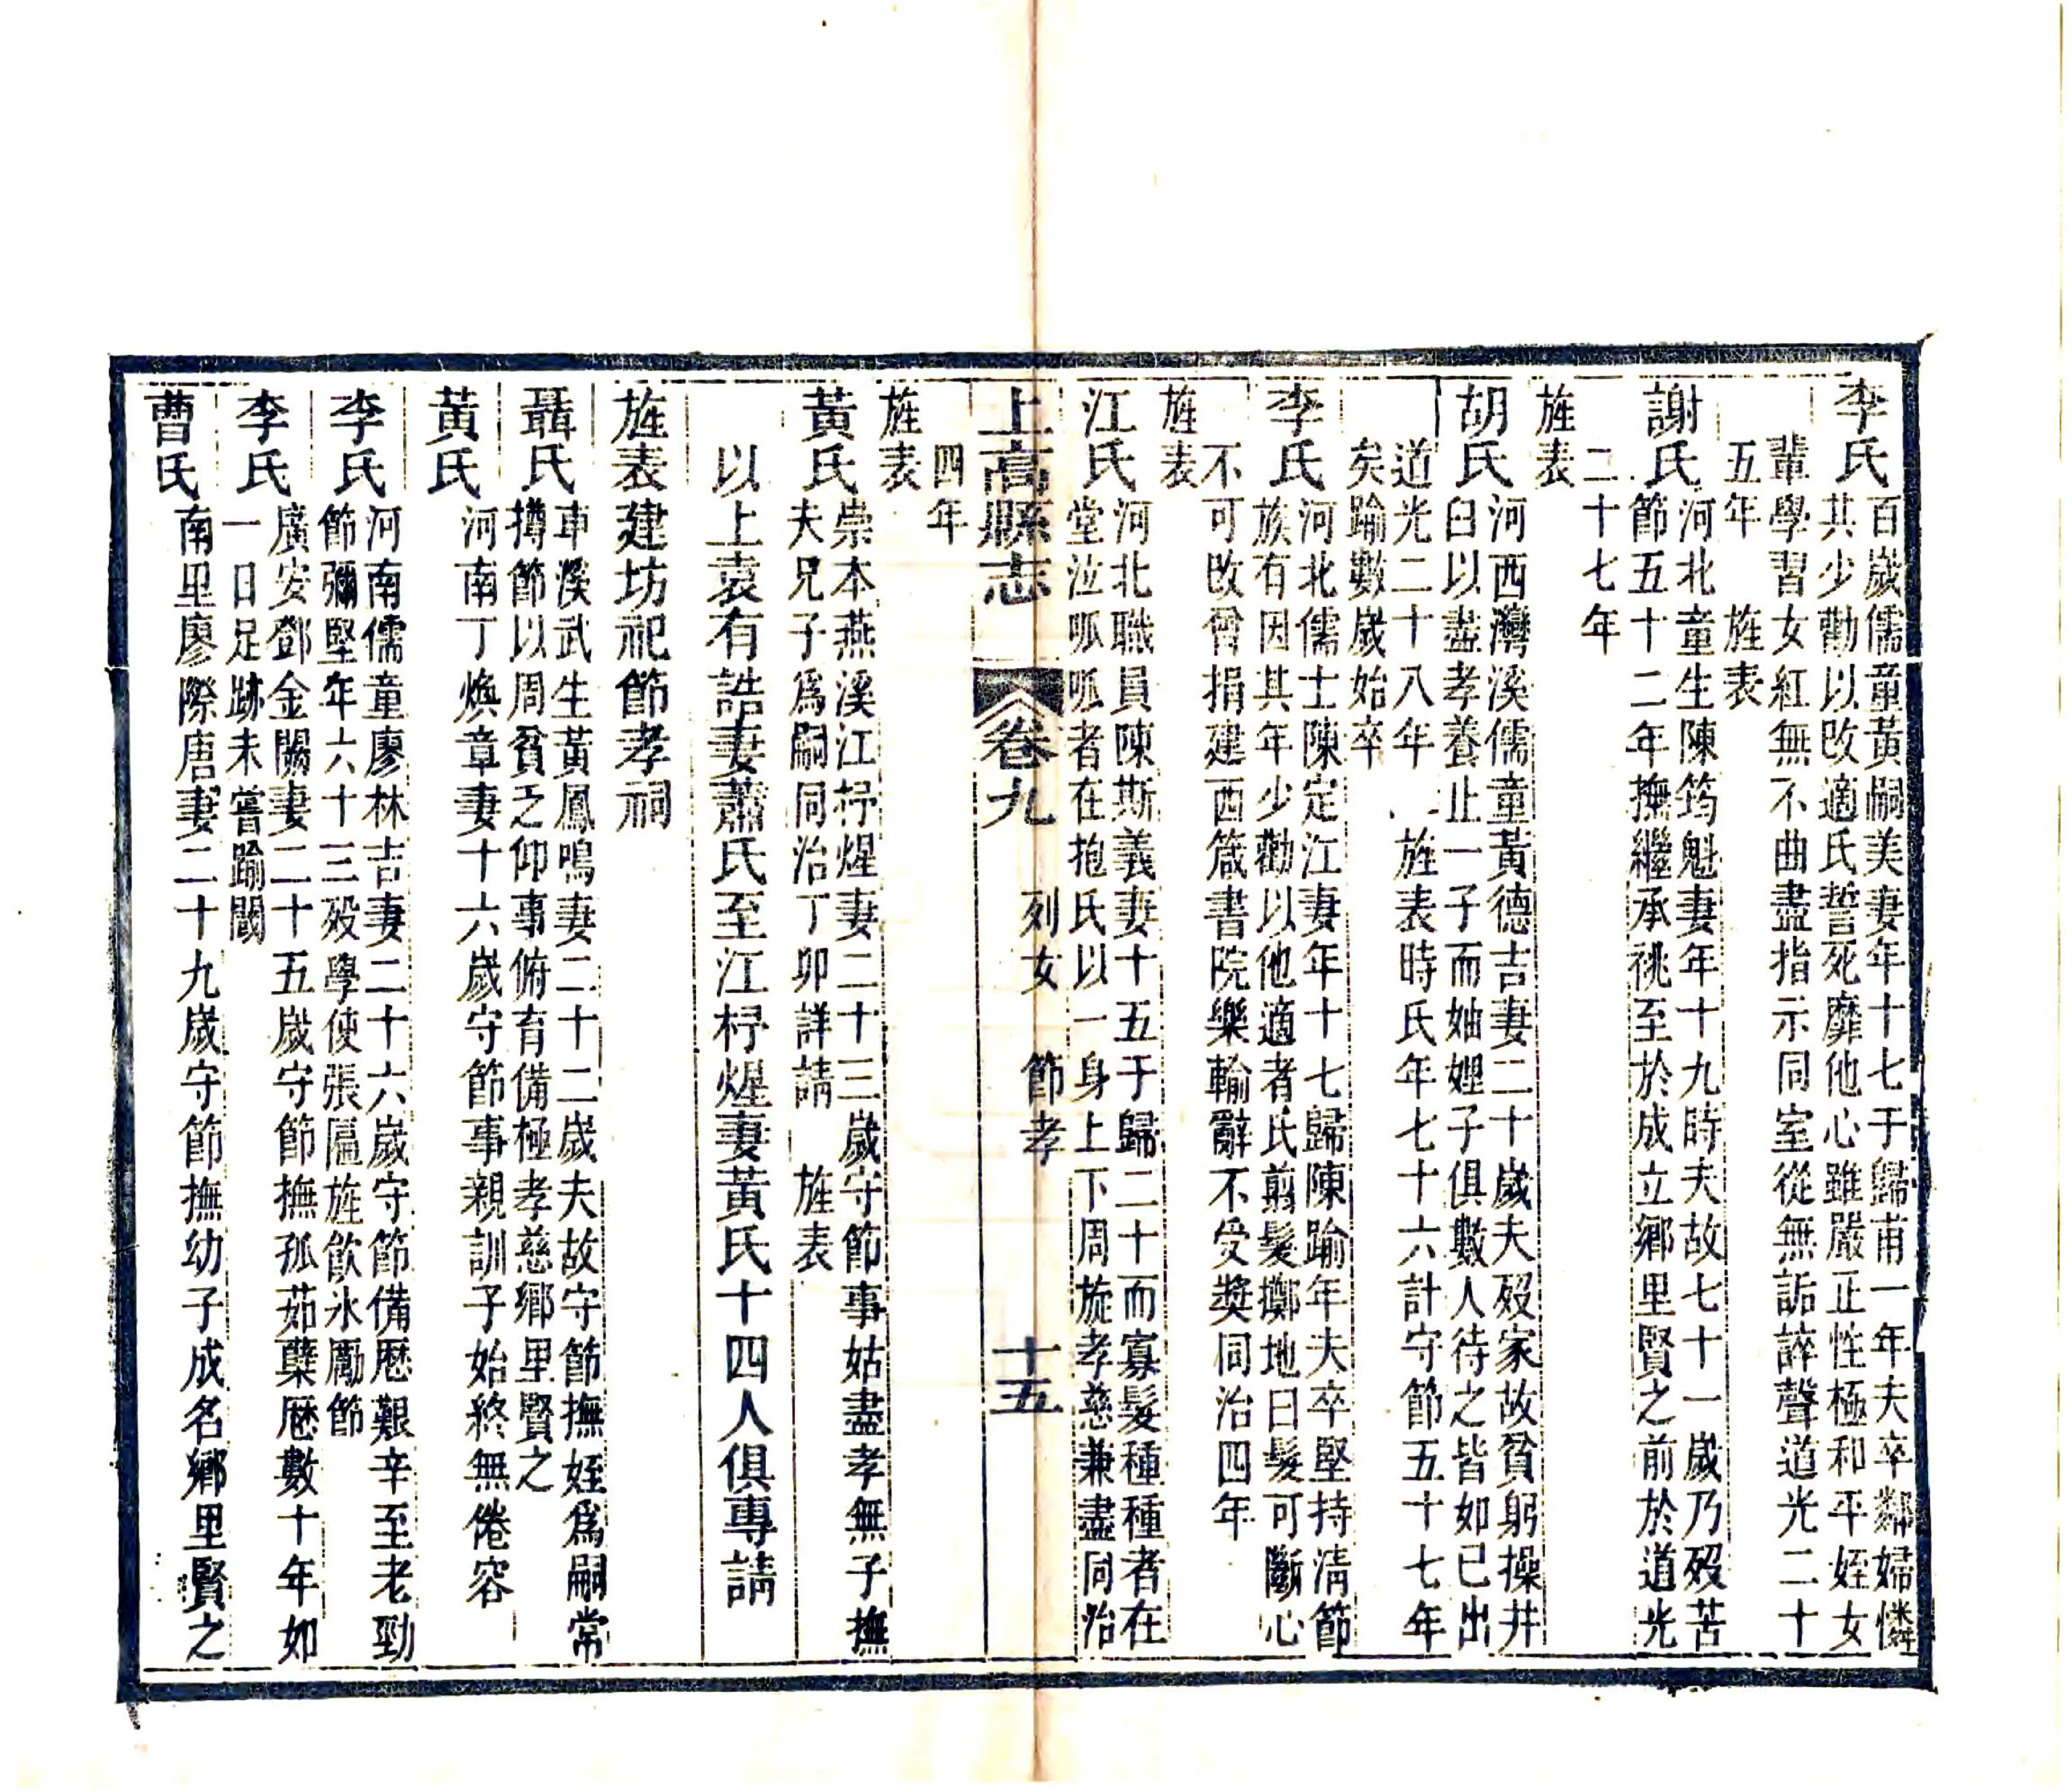 李氏百歲儒童黃嗣美妻年十七于歸甫一年夫卒鄰婦憐
其少勸以改適氏誓死靡他心雖嚴正性極和平姪女
輩學習女紅無不曲盡指示同室從無詬誶聲道光二十
五年　旌表
謝氏河北童生陳筠魁妻年十九時夫故七十一歲乃歿苦
節五十二年撫繼承祧至於成立鄉里賢之前於道光
二十七年
旌表
胡氏河西灣溪儒童黃德吉妻二十歲夫歿家故貧躬操井
臼以盡孝養止一子而妯娌子俱數人待之皆如己出
道光二十八年　旌表時氏年七十六計守節五十七年
矣踰數歲始卒
李氏河北儒士陳定江妻年十七歸陳踰年夫卒堅持清節
族有因其年少勸以他適者氏剪髮擲地曰髮可斷心
不可改曾捐建西箴書院樂輸辭不受獎同治四年
旌表
江氏河北職員陳斯義妻十五于歸二十而寡髮種種者在
堂泣呱呱者在抱氏以一身上下周旋孝慈兼盡同治
上高縣志　卷九　列女　節孝　十五
四年
旌表
黃氏崇本燕溪江杼煋妻二十三歲守節事姑盡孝無子撫
夫兄子爲嗣同治丁卯詳請　旌表
以上袁有誥妻蕭氏至江杼煋妻黃氏十四人俱專請
旌表建坊祀節孝祠
聶氏車溪武生黃鳳鳴妻二十二歲夫故守節撫姪爲嗣常
撙節以周貧乏仰事俯育備極孝慈鄉里賢之
黃氏河南丁煥章妻十六歲守節事親訓子始終無倦容
李氏河南儒童廖林吉妻二十六歲守節備歷艱辛至老勁
節彌堅年六十三歿學使張區旌飲冰勵節
李氏廣安鄧金闕妻二十五歲守節撫孤茹蘗歷數十年如
一日足跡未嘗踰閾
曹氏南里廖際唐妻二十九歲守節撫幼子成名鄉里賢之